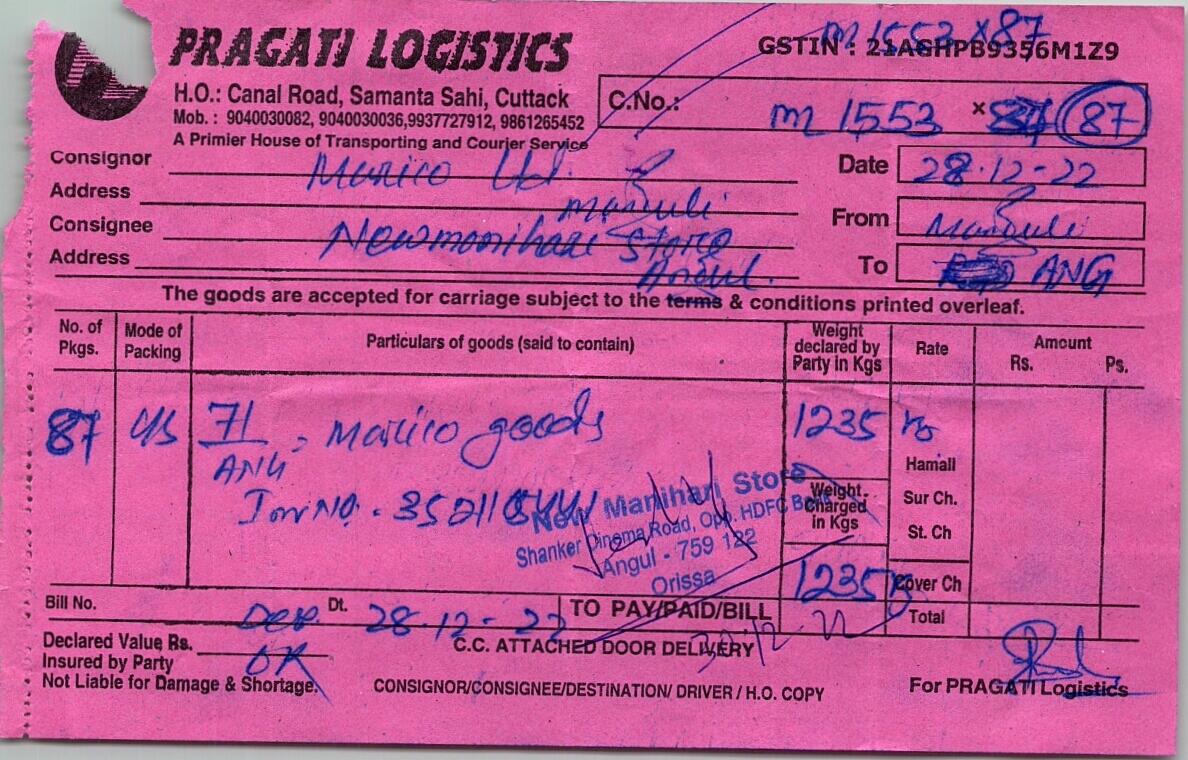 m 1553 x 87
PRAGATI LOGISTICS
GSTIN : 21AGHPB9356M1Z9
H.O.: Canal Road, Samanta Sahi, Cuttack
Mob. : 9040030082, 9040030036,9937727912, 9861265452
A Primier House of Transporting and Courier Service
C.No.: m 1553 x 87
Consignor Marico Ltd.
Date 28.12-22
Address
From
Consignee Newmanihari Store
Address Angul.
To ANG
The goods are accepted for carriage subject to the terms & conditions printed overleaf.
No. of Pkgs. Mode of Packing Particulars of goods (said to contain) Weight declared by Party in Kgs Rate Amount Rs. Ps.
87 71 Marico goods 1235
ANG
Hamali
Inv NO.
New Manihari Store
Weight Charged in Kgs
Sur Ch.
Shanker Cinema Road, Opp. HDFC Bank
St. Ch
Angul - 759 122
Orissa
1235 Cover Ch
Bill No. Dt. 28-12-22 TO PAY/PAID/BILL Total
Declared Value Rs. C.C. ATTACHED DOOR DELIVERY
Insured by Party OR
Not Liable for Damage & Shortage. CONSIGNOR/CONSIGNEE/DESTINATION/ DRIVER / H.O. COPY For PRAGATI Logistics